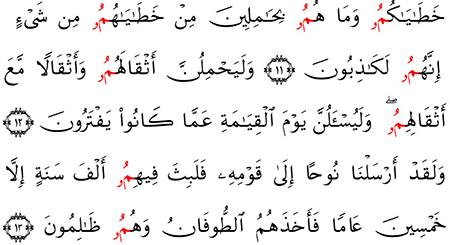 خَطَٰيَٰكُمُۥ وَمَا هُمُۥ بِحَٰمِلِينَ مِنْ خَطَٰيَٰهُمُۥ مِن شَيْءٍ
إِنَّهُمُۥ لَكَٰذِبُونَ ١١ وَلَيَحْمِلُنَّ أَثْقَالَهُمُۥ وَأَثْقَالًا مَّعَ
أَثْقَالِهِمُۥۖ وَلَيُسْـَٔلُنَّ يَوْمَ اَ۬لْقِيَٰمَةِ عَمَّا كَانُواْ يَفْتَرُونَ ١٢
وَلَقَدْ أَرْسَلْنَا نُوحًا إِلَىٰ قَوْمِهِۦ فَلَبِثَ فِيهِمُۥ أَلْفَ سَنَةٍ إِلَّا
خَمْسِينَ عَامًا فَأَخَذَهُمُ اُ۬لطُّوفَانُ وَهُمُۥ ظَٰلِمُونَ ١٣